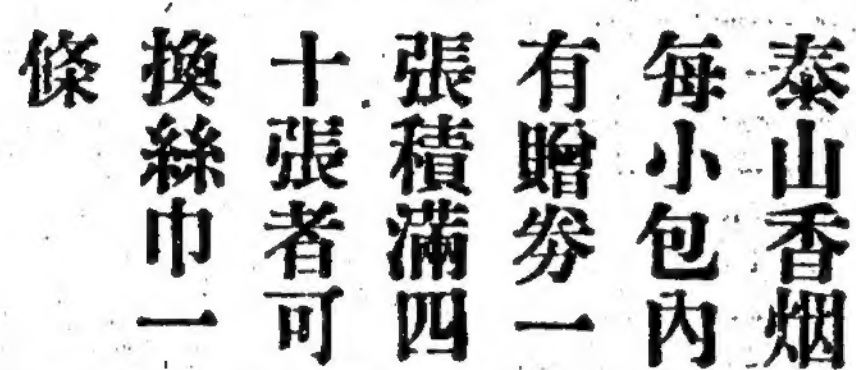 泰山香烟
每小包內
有贈劵一
張積滿四
十張者可
換絲巾一
條